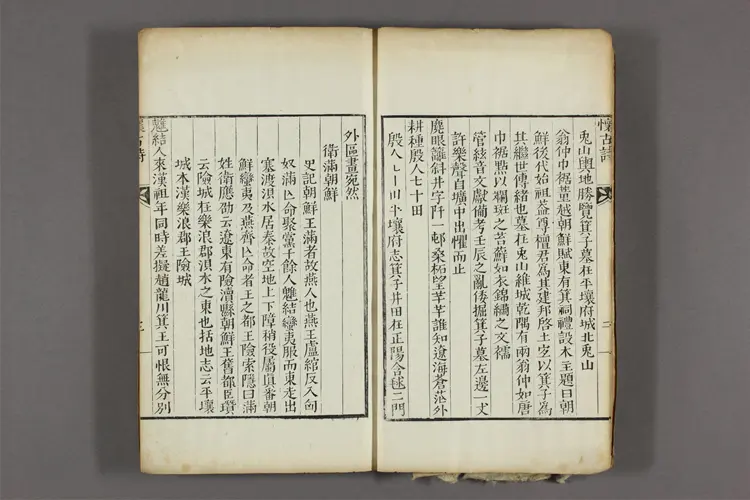 懷古詩
二
兎山輿地勝覽箕子墓在平壤府城北兎山
翁仲巾裾董越朝鮮賦東有箕祠禮設木主題曰朝
鮮後代始祖蓋尊檀君爲其建邦啓土宜以箕子爲
其繼世傳緒也墓在兎山維城乾隅有兩翁仲如唐
巾裾點以爛斑之苔蘚如衣錦繡之文襦
管絃音文獻備考壬辰之亂倭掘箕子墓左邊一丈
許樂聲自壙中出懼而止
麂眼籬斜井字阡一邨桑柘望芊芊誰知遼海蒼茫外
耕種殷人七十田
殷人七十田平壤府志箕子井田在正陽含毬二門
外區畫宛然
衛滿朝鮮
史記朝鮮王滿者故燕人也燕王盧綰反入匈
奴滿亾命聚黨千餘人魋結蠻夷服而東走出
塞渡浿水居秦故空地上下障稍役屬眞番朝
鮮蠻夷及燕齊亾命者王之都王險索隱曰滿
姓衛應劭云遼東有險瀆縣朝鮮王舊都臣瓚
云險城在樂浪郡浿水之東也括地志云平壤
城本漢樂浪郡王險城
魋結人來漢祖年同時差擬趙龍川箕王可恨無分別
懷古詩
三